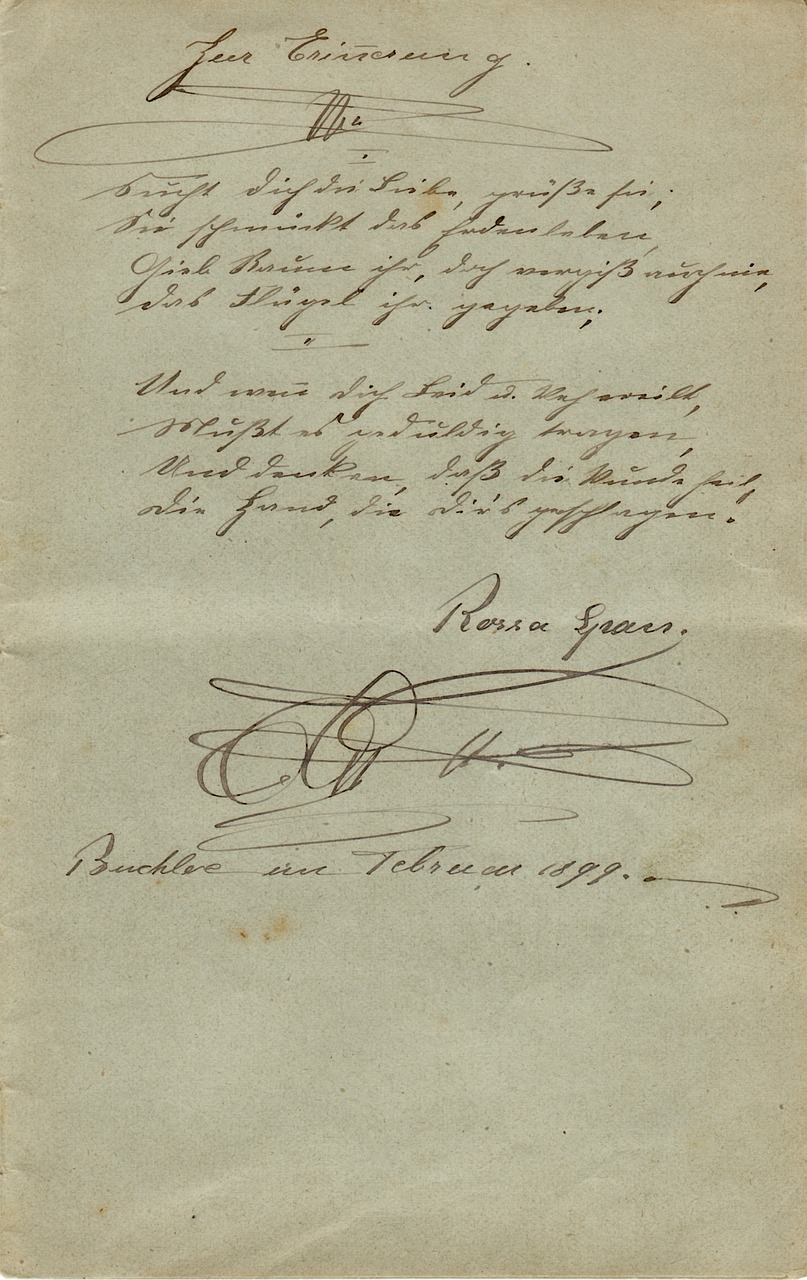 Zur Erin̅erung.
Sucht dich die Liebe, grüße sie;
Sie schmückt das Erdenleben,
Gieb Raum ihr, doch vergiß auch nie,
das Flügel ihr gegeben;
Und wen̅ dich Leid u. Weh ereilt,
Mußt es geduldig tragen,
Und denken, daß die Wunde heilt,
Die Hand, die dir's geschlagen.
Rosa
Buchloe im Februar 1899.